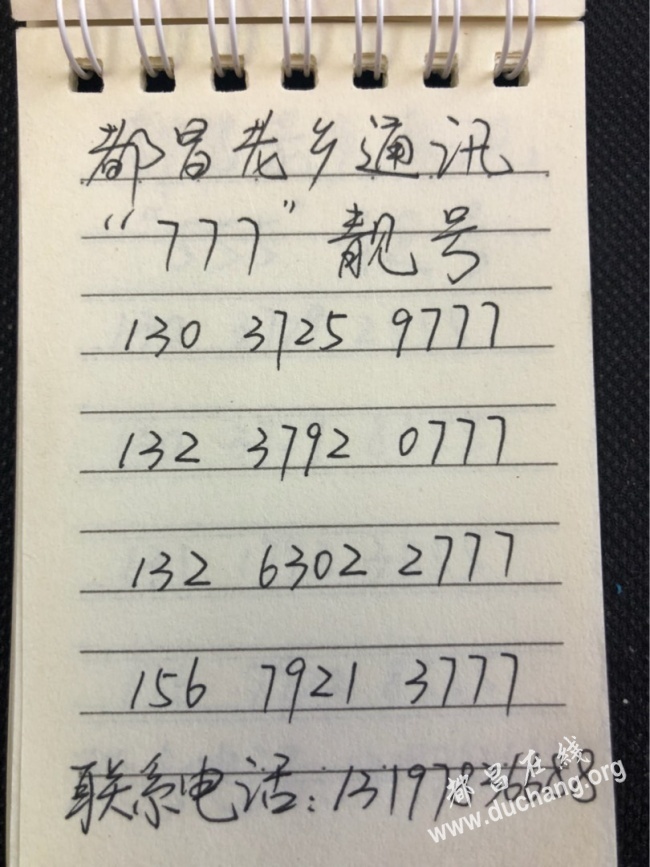 都昌老乡通讯
“777”靓号
130 3725 9777
132 3792 0777
132 6302 2777
156 7921 3777
联系电话：13197836688
都昌在线
www.duchang.org